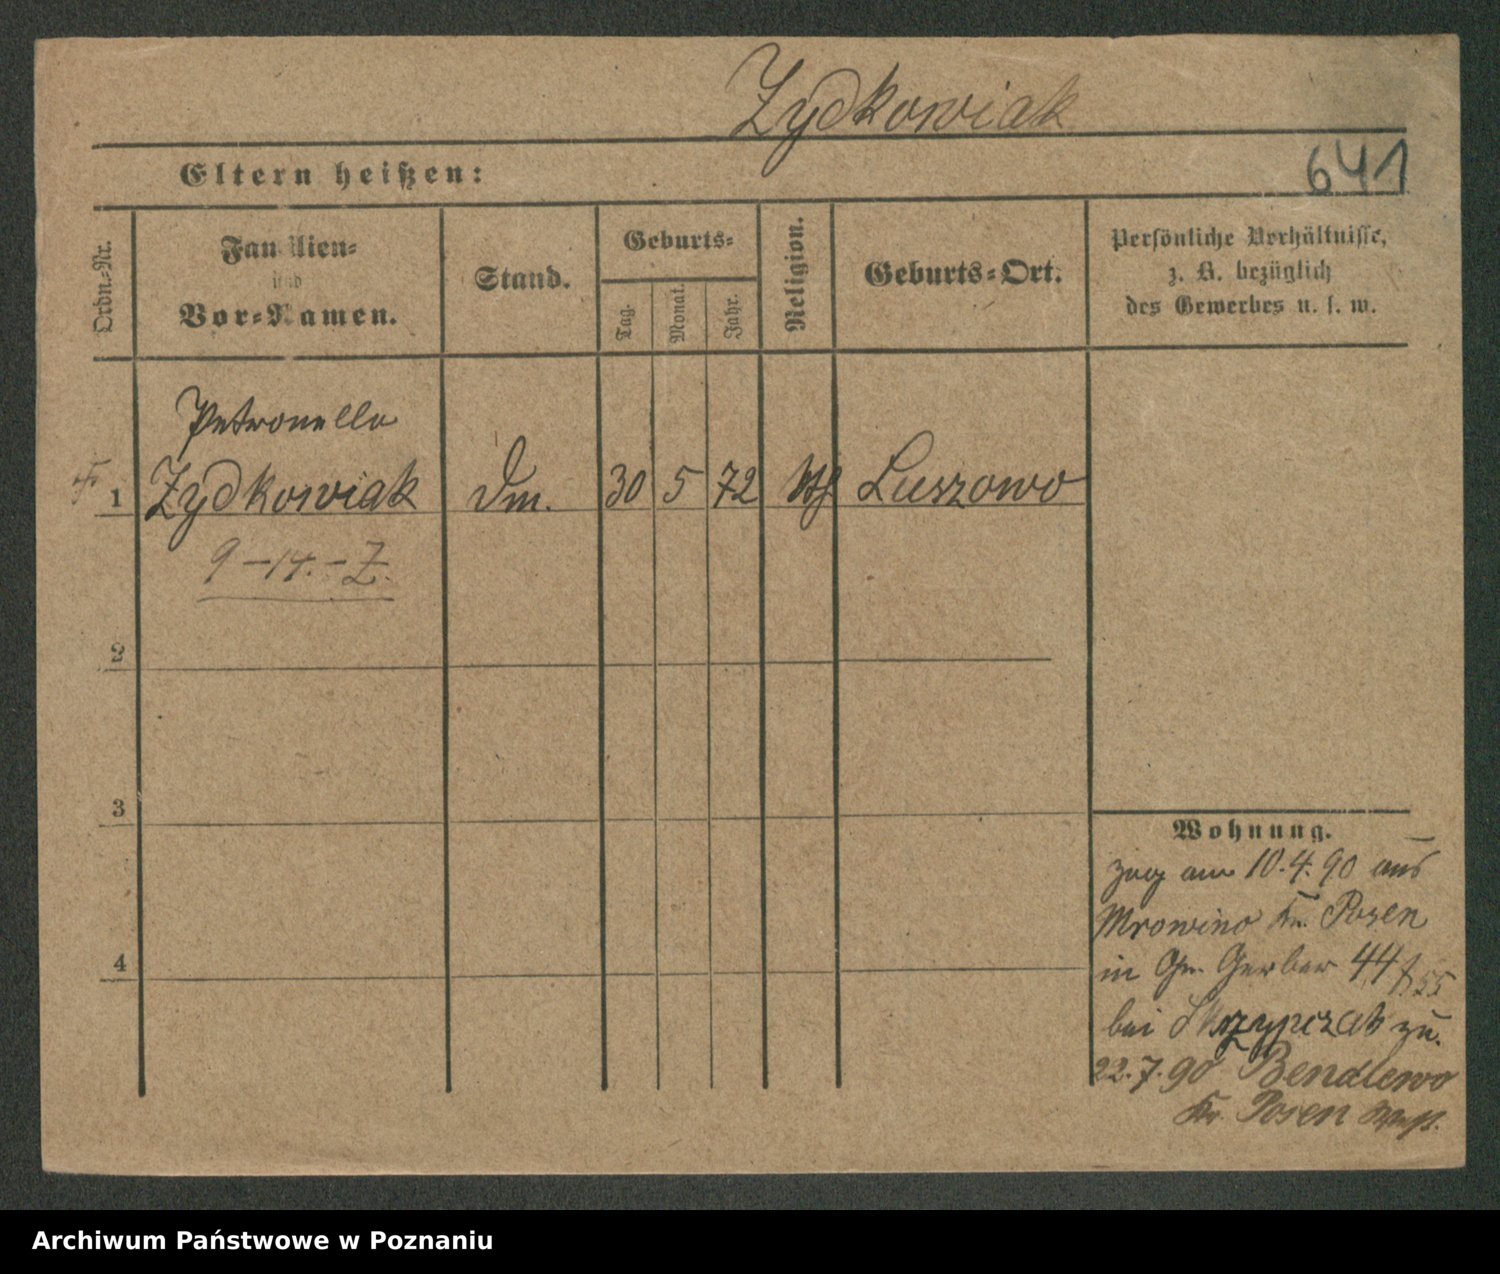 Zydkowiak
Eltern heißen:
641
Ordn.-Nr.
Familien-
und
Vor-Namen.
Stand.
Geburts-
Tag.
Monat.
Jahr.
Religion.
Geburts-Ort.
Persönliche Verhältnisse,
z. B. bezüglich
des Gewerbes u. s. w.
Petronella
1 Zydkowiak Dm. 30 5 72 Luszowo
9-14.-Z.
2
3
4
Wohnung.
zug am 10.4.90 aus
Mrowino Kr. Posen
in Gr. Gerber 44
bei Skrzypczak zu.
22.7.90 Bendlewo
Kr. Posen West.
Archiwum Państwowe w Poznaniu